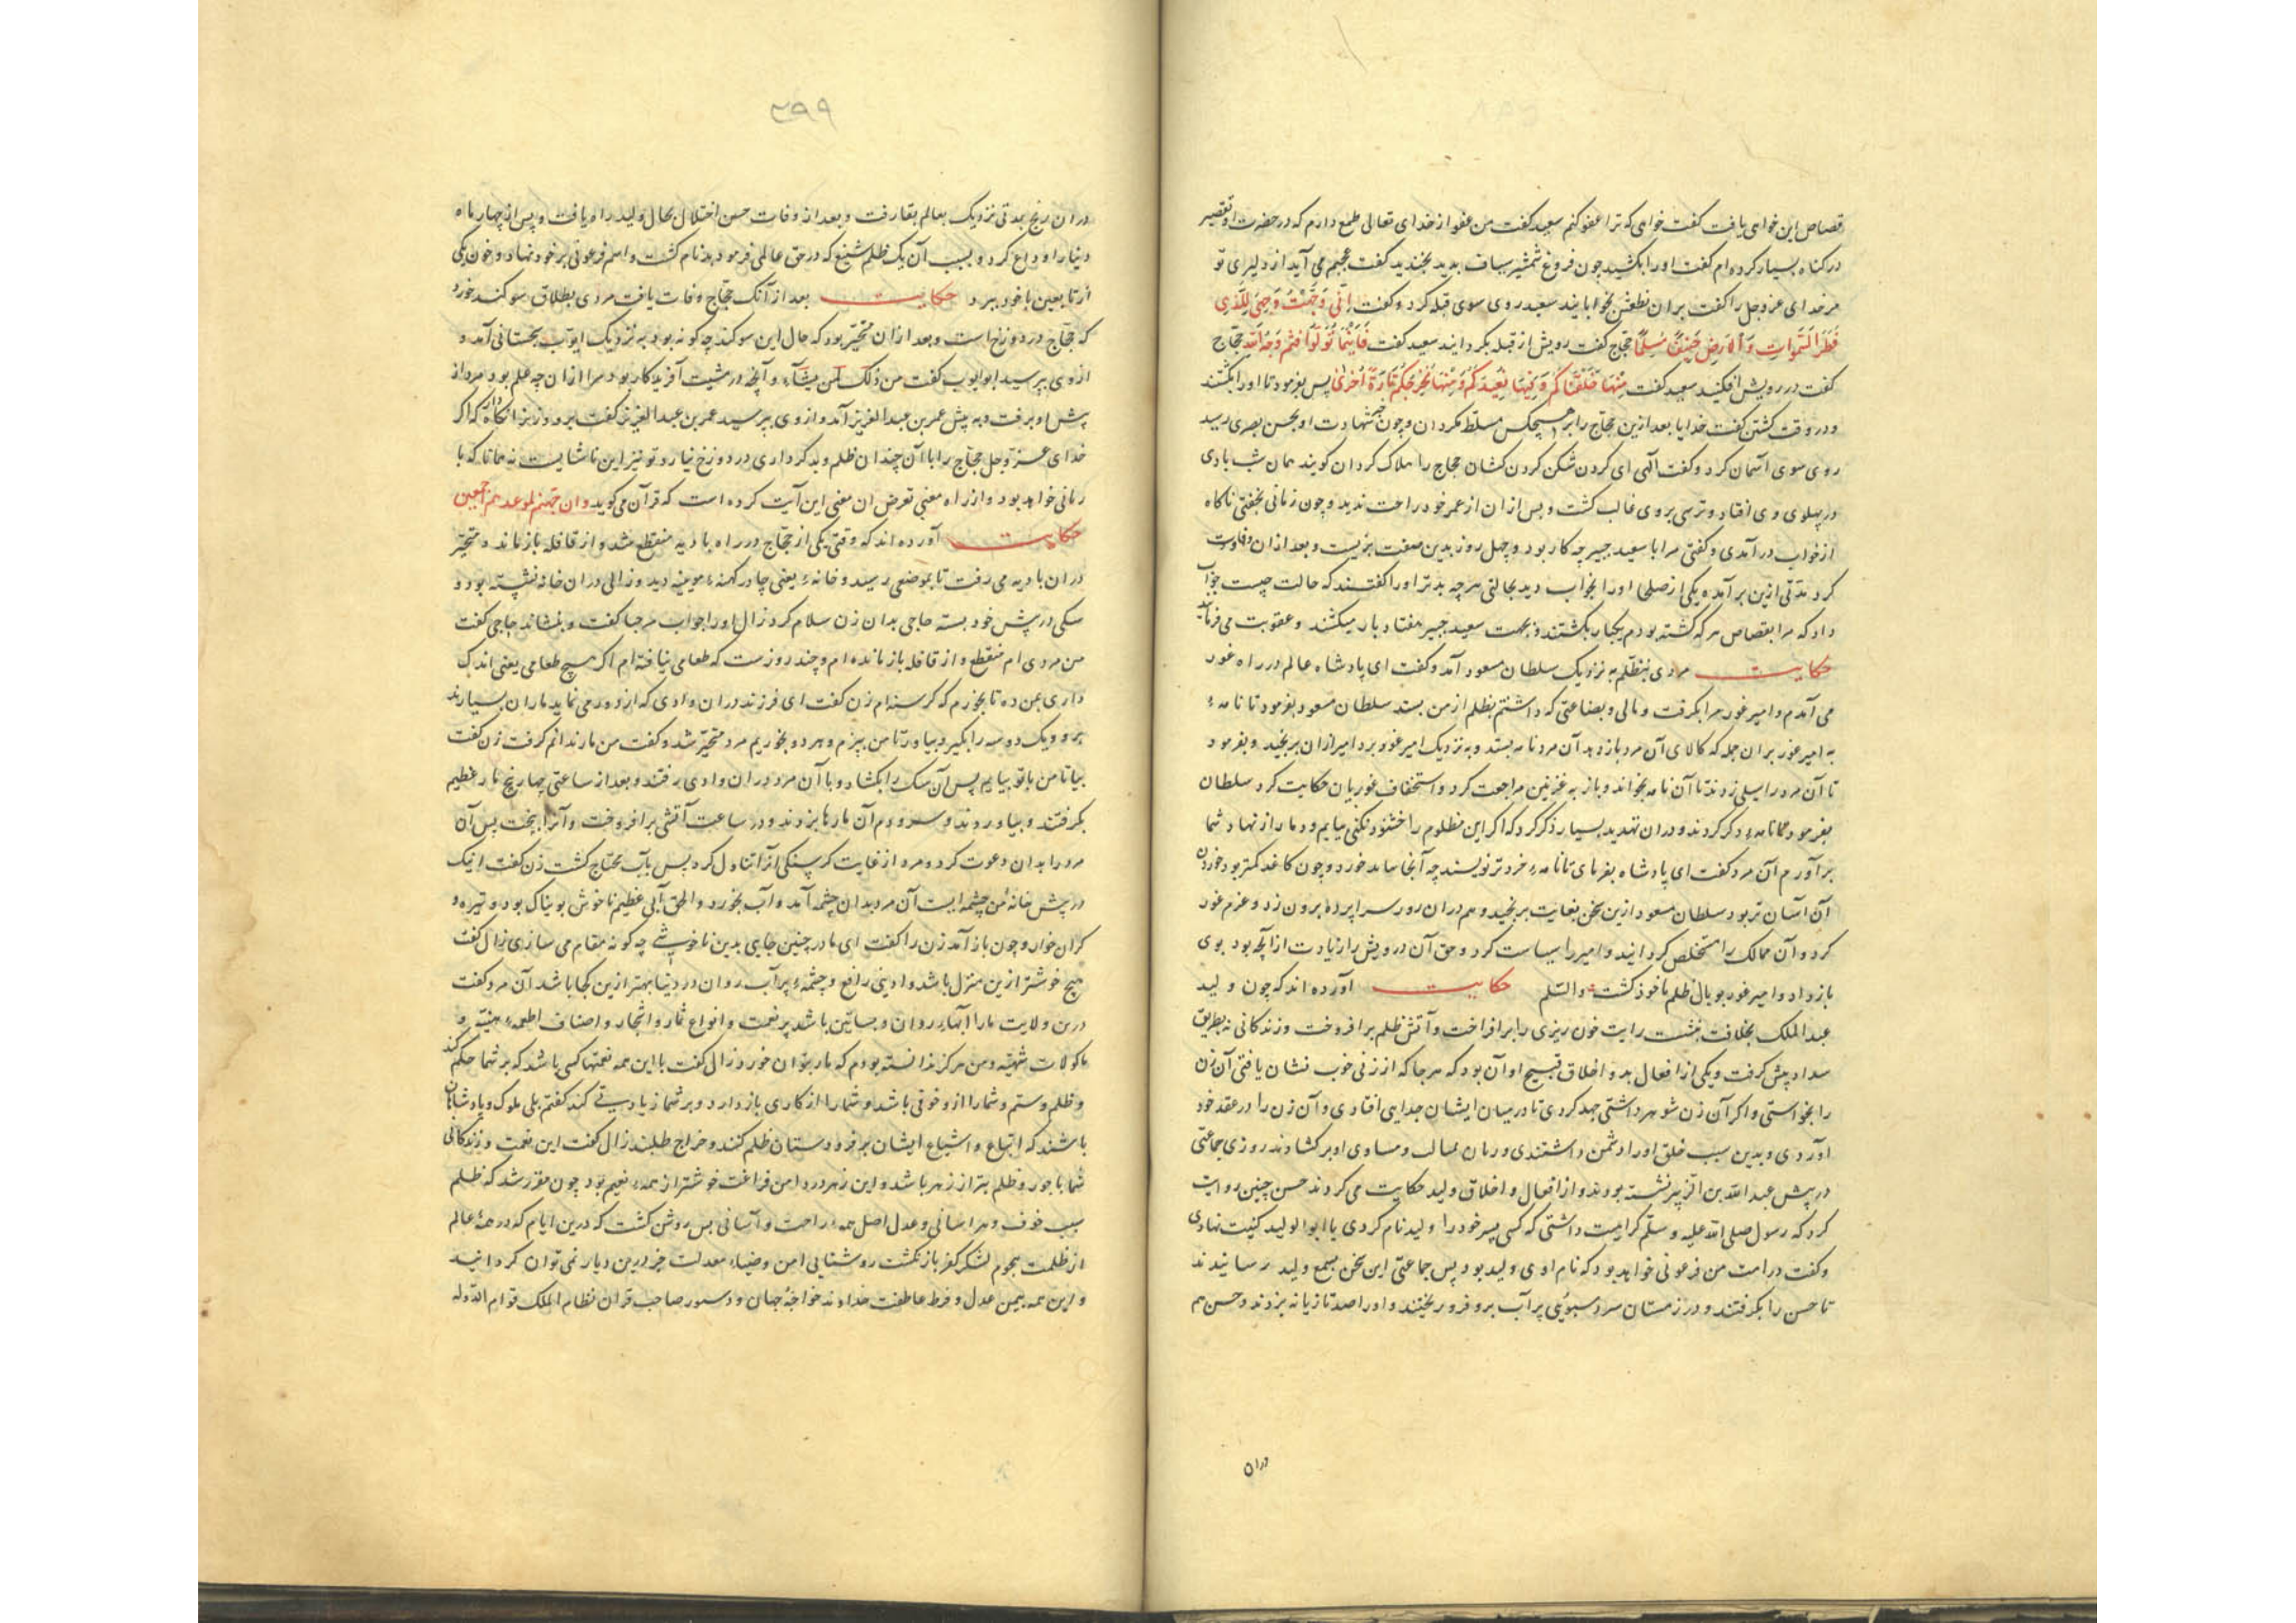 قصاص این خواهی یافت گفت خواهی که ترا عفو کنم سعید گفت من عفو از خدای تعالی طمع دارم که در حضرت او تقصیر
در کناه بسیار کرده‌ام گفت اورا بکشید چون فروغ شمشیر سیاف بدید بخندید گفت عجبم می آید از دلیری تو
مر خدای عزوجل را گفت بران نطعش بخوابانید سعید روی سوی قبله کرد و گفت اِنّی وَجَّهْتُ وَجْهِیَ لِلَّذی
فَطَرَ السَّمَواتِ وَالْاَرْضَ حَنیفًا مُسْلِمًا حجاج گفت رویش از قبله بگردانید سعید گفت فَاَیْنَمَا تُوَلّوُا فَثَمَّ وَجْهُ اللّه حجاج
گفت در رویش افکنید سعید گفت مِنْهَا خَلَقْنَاکُمْ وَفِیهَا نُعِیدُکُمْ وَمِنْهَا نُخْرِجُکُمْ تَارَةً اُخْرَیٰ پس بفرمود تا اورا بکشتند
و در وقت کشتن گفت خدایا بعد ازین حجاج را بر هیچکس مسلط مکردان و چون خبر شهادت او بحسن بصری رسید
روی سوی آسمان کرد و گفت الهی ای کردن شکن کردن کشان حجاج را هلاک کردان کویند همان شب بادی
در پهلوی وی افتاد و ترسی بر وی غالب کشت و پس ازان از عمر خود راحت ندید و چون زمانی بخفتی ناکاه
از خواب درآمدی و گفتی مرا با سعید جبیر چه کار بود و چهل روز بدین صفت بزیست و بعد ازان وفات
کرد مدتی ازین برآمد یکی از صلحا اورا بخواب دید بحالتی هرچه بدتر اورا گفتند که حالت چیست جواب
داد که مرا بقصاص هرکه کشته بودم یکبار بکشتند و بجهت سعید جبیر هفتاد بار میکشند و عقوبت می فرمایند
حکایت مردی بتظلم به نزدیک سلطان مسعود آمد و گفت ای پادشاه عالم در راه غور
می آمدم و امیر غور مرا بگرفت و مالی و بضاعتی که داشتم بظلم از من بستد سلطان مسعود بفرمود تا نامهٔ
به امیر غور بران جمله که کالای آن مرد باز دهد آن مرد نامه بستد و به نزدیک امیر غور برد امیر ازان برنجید و بفرمود
تا آن مرد را سیلی زدند تا آن نامه بخواند و باز به غزنین مراجعت کرد و استخفاف غوریان حکایت کرد سلطان
بفرمود تا نامهٔ دکر کردند و دران تهدید بسیار ذکر کرد که اکر این مظلوم را خشنود نکنی بیایم و دمار از نهاد شما
برآورم آن مرد گفت ای پادشاه بفرمای تا نامهٔ خردتر نویسند چه آنجا می‌باید خورد و چون کاغد کمتر بود خوردن
آن آسان تر بود سلطان مسعود ازین سخن بغایت برنجید و هم دران روز سراپرده بیرون زد و عزم غور
کرد و آن ممالک را مستخلص کردانید و امیر را سیاست کرد و حق آن درویش را زیادت از آنچه بود بوی
باز داد و امیر غور بوبال ظلم ماخوذ کشت والسّلم حکایت آورده اند که چون ولید
عبد الملک بخلافت بنشست رایت خون ریزی را برافراخت و آتش ظلم برافروخت و زندکانی نه بطریق
سداد پیش کرفت و یکی از افعال بد و اخلاق قبیح او آن بود که هرجا که از زنی خوب نشان یافتی آن زن
را بخواستی و اکر آن زن شوهر داشتی جهد کردی تا در میان ایشان جدایی افتادی و آن زن را در عقد خود
آوردی و بدین سبب خلق اورا دشمن داشتندی و زبان بمثالب و مساوی او برکشادند روزی جماعتی
در پیش عبدالله بن الزبیر نشسته بودند و از افعال و اخلاق ولید حکایت می کردند حسن چنین روایت
کرد که رسول صلی الله علیه و سلم کراهیت داشتی که کسی پسر خود را ولید نام کردی یا ابوالولید کنیت نهادی
و گفت در امت من فرعونی خواهد بود که نام او ولید بود پس جماعتی این سخن بسمع ولید رسانیدند
تا حسن را بکرفتند و در زمستان سرد سبوئی پر آب برو فرو ریختند و اورا صد تازیانه بزدند و حسن هم
دران
۳۹۹
دران رنج بمدتی نزدیک بعالم بقا رفت و بعد از وفات حسن اختلال بحال ولید راه یافت و پس از چهار ماه
دنیا را وداع کرد و بسبب آن یک ظلم شنیع که در حق عالمی فرمود بدنام کشت و اسم فرعونی بر خود نهاد و خون یکی
از تابعین با خود ببرد حکایت بعد از آنک حجاج وفات یافت مردی بطلاق سوکند خورد
که حجاج در دوزخ است و بعد ازان متحیر بود که حال این سوکند چه کونه بود به نزدیک ایوب سجستانی آمد و
از وی بپرسید ابوایوب گفت من ذلک لمن یشاء و آنچه در مشیت آفریدکار بود مرا ازان چه علم بود مرد از
پیش او برفت و به پیش عمر بن عبدالعزیز آمد و از وی بپرسید عمر بن عبدالعزیز گفت برو و زنرا نکاه دار که اکر
خدای عزوجل حجاج را با آن چندان ظلم و بدکرداری در دوزخ نیارد تو نیز این ناشایست نه همانا که با
زمانی خواهد بود و از راه معنی تعرض ان معنی این آیت کرده است که قرآن می کوید وان جهنم لموعدهم اجمعین
حکایت آورده اند که وقتی یکی از حجاج در راه بادیه منقطع شد و از قافله باز ماند و متحیر
دران بادیه می رفت تا بموضعی رسید و خانهٔ یعنی چادر کهنهٔ مویینه دید و زالی دران خانه نشسته بود و
سکی در پیش خود بسته حاجی بدان زن سلام کرد زال اورا جواب مرحبا گفت و بنشاند حاجی گفت
من مردی ام منقطع و از قافله باز مانده ام و چند روزست که طعامی نیافته ام اکر هیچ طعامی یعنی اندک
داری بمن ده تا بخورم که کرسنه‌ام زن گفت ای فرزند دران وادی که از دور می نماید ماران بسیارند
برو و یک دو سه را بگیر و بیاور تا من بپزم و هر دو بخوریم مرد متحیر شد و گفت من مار ندانم کرفت زن گفت
بیا تا من با تو بیایم پس آن سک را بکشاد و با آن مرد دران وادی رفتند و بعد از ساعتی چهار پنج مار عظیم
بکرفتند و بیاوردند و سر و دم آن مارها بزدند و در ساعت آتشی برافروخت و آنرا بپخت پس آن
مرد را بدان دعوت کرد و مرد از غایت کرسنکی ازان تناول کرد پس بآب محتاج کشت زن گفت اینک
در پیش خانهٔ من چشمه ایست آن مرد بدان چشمه آمد و آب بخورد و الحق آبی عظیم ناخوش بویناک بود و تیره و
کران خوار و چون باز آمد زن را گفت ای مادر چنین جایی بدین ناخوشی چه کونه مقام می سازی زال گفت
هیچ خوشتر ازین منزل باشد وادیی رافع و چشمهٔ پر آب روان در دنیا بهتر ازین کجا باشد آن مرد گفت
درین ولایت مارا آبهای روان و بساتین باشد پر نعمت و انواع ثمار و اشجار و اصناف اطعمهٔ هنیّه و
ماکولات شهیّه و من هرکز ندانسته بودم که مار بتوان خورد زال گفت با این همه نعمتها کسی باشد که بر شما حکم کند
و ظلم و ستم و شما را ازو خوفی باشد و شما را از کاری باز دارد و بر شما زیادتی کند گفتم بلی ملوک و پادشاهان
باشند که اتباع و اشیاع ایشان بر فرودستان ظلم کنند و خراج طلبند زال گفت این نعمت و زندکانی
شما با جور و ظلم بتر از زهر باشد و این زهر در دامن فراغت خوشتر از همهٔ نعیم بود چون مقرر شد که ظلم
سبب خوف و هراسانی و عدل اصل همهٔ راحت و آسانی بس روشن کشت که درین ایام که در همهٔ عالم
از ظلمت هجوم لشکر کفر باز نکشت روشنایی امن و ضیاء معدلت جز درین دیار نمی توان کردانید
و این همه بیمن عدل و فرط عاطفت خداوند خواجهٔ جهان و دستور صاحب قران نظام الملک قوام الدوله